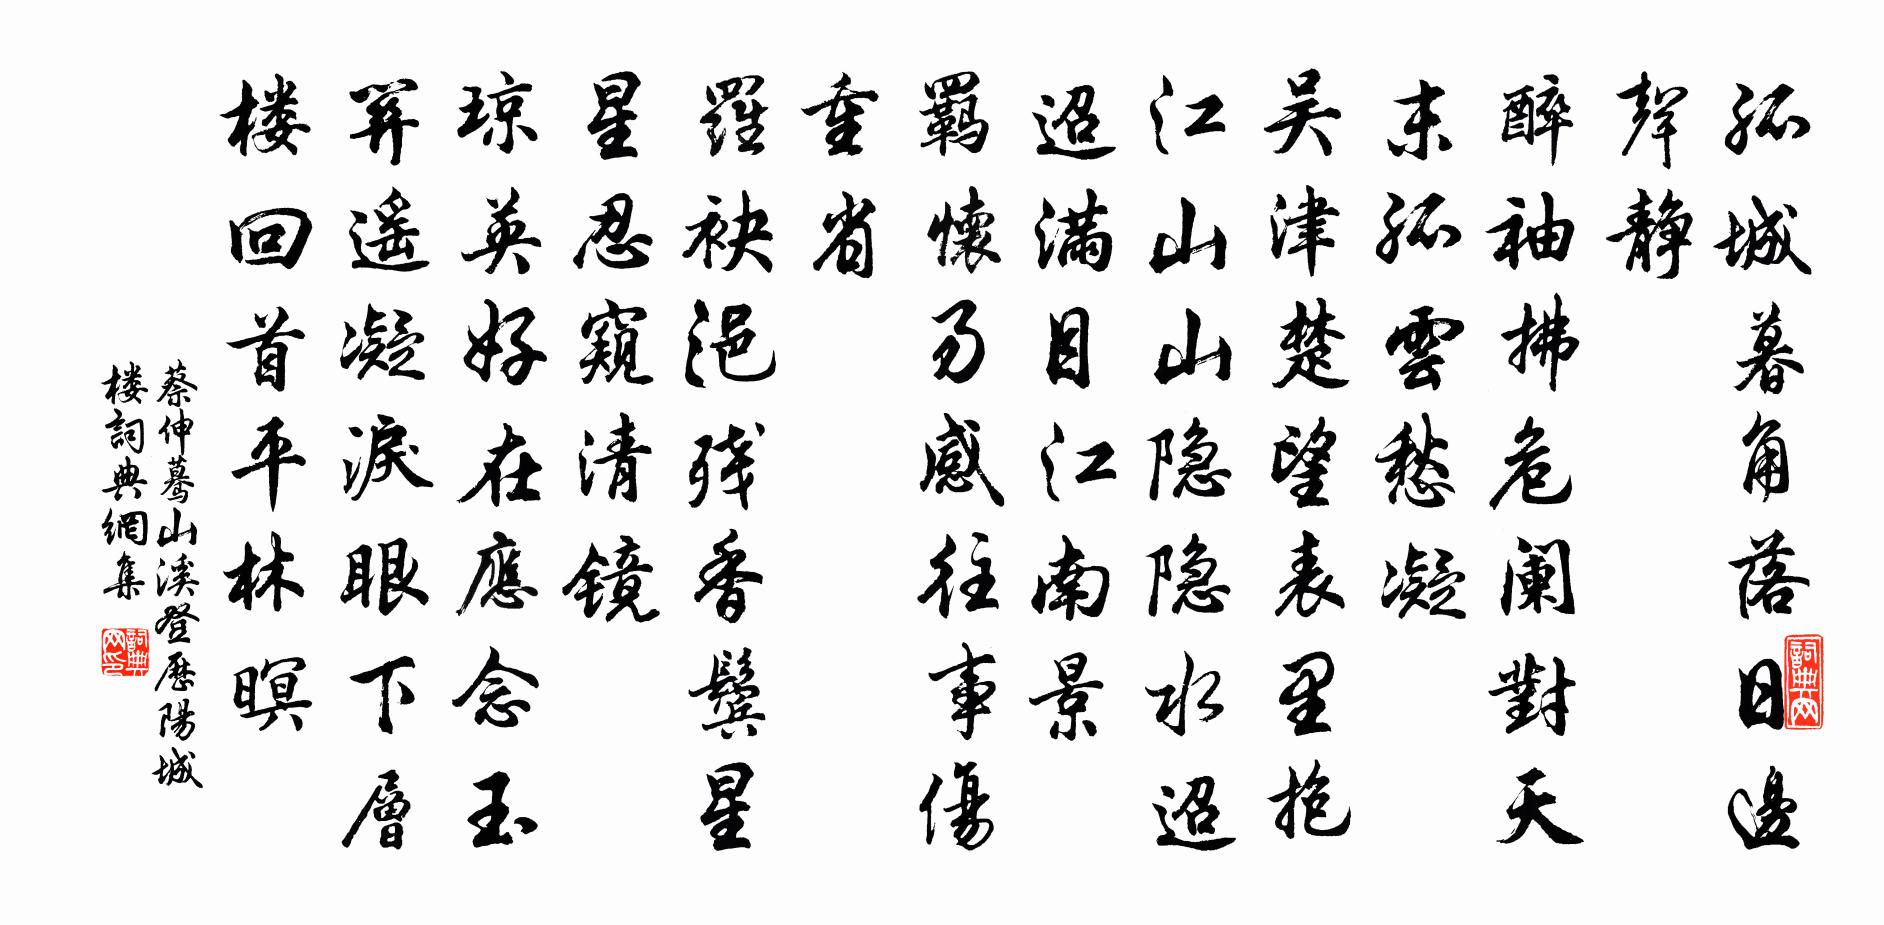 孤城暮角落日邊
聲靜
醉袖拂危阑對天
末孤雲愁凝
吴津楚望表里抱
江山山隐隐水迢
迢滿目江南景
羈懷易感往事傷
重省
羅袂浥残香鬓星
星忍窺清镜
琼英好在應念玉
關遥凝淚眼下層
楼回首平林暝
蔡伸蓦山溪登歷陽城
楼詞典網集
詞典网
詞典网印